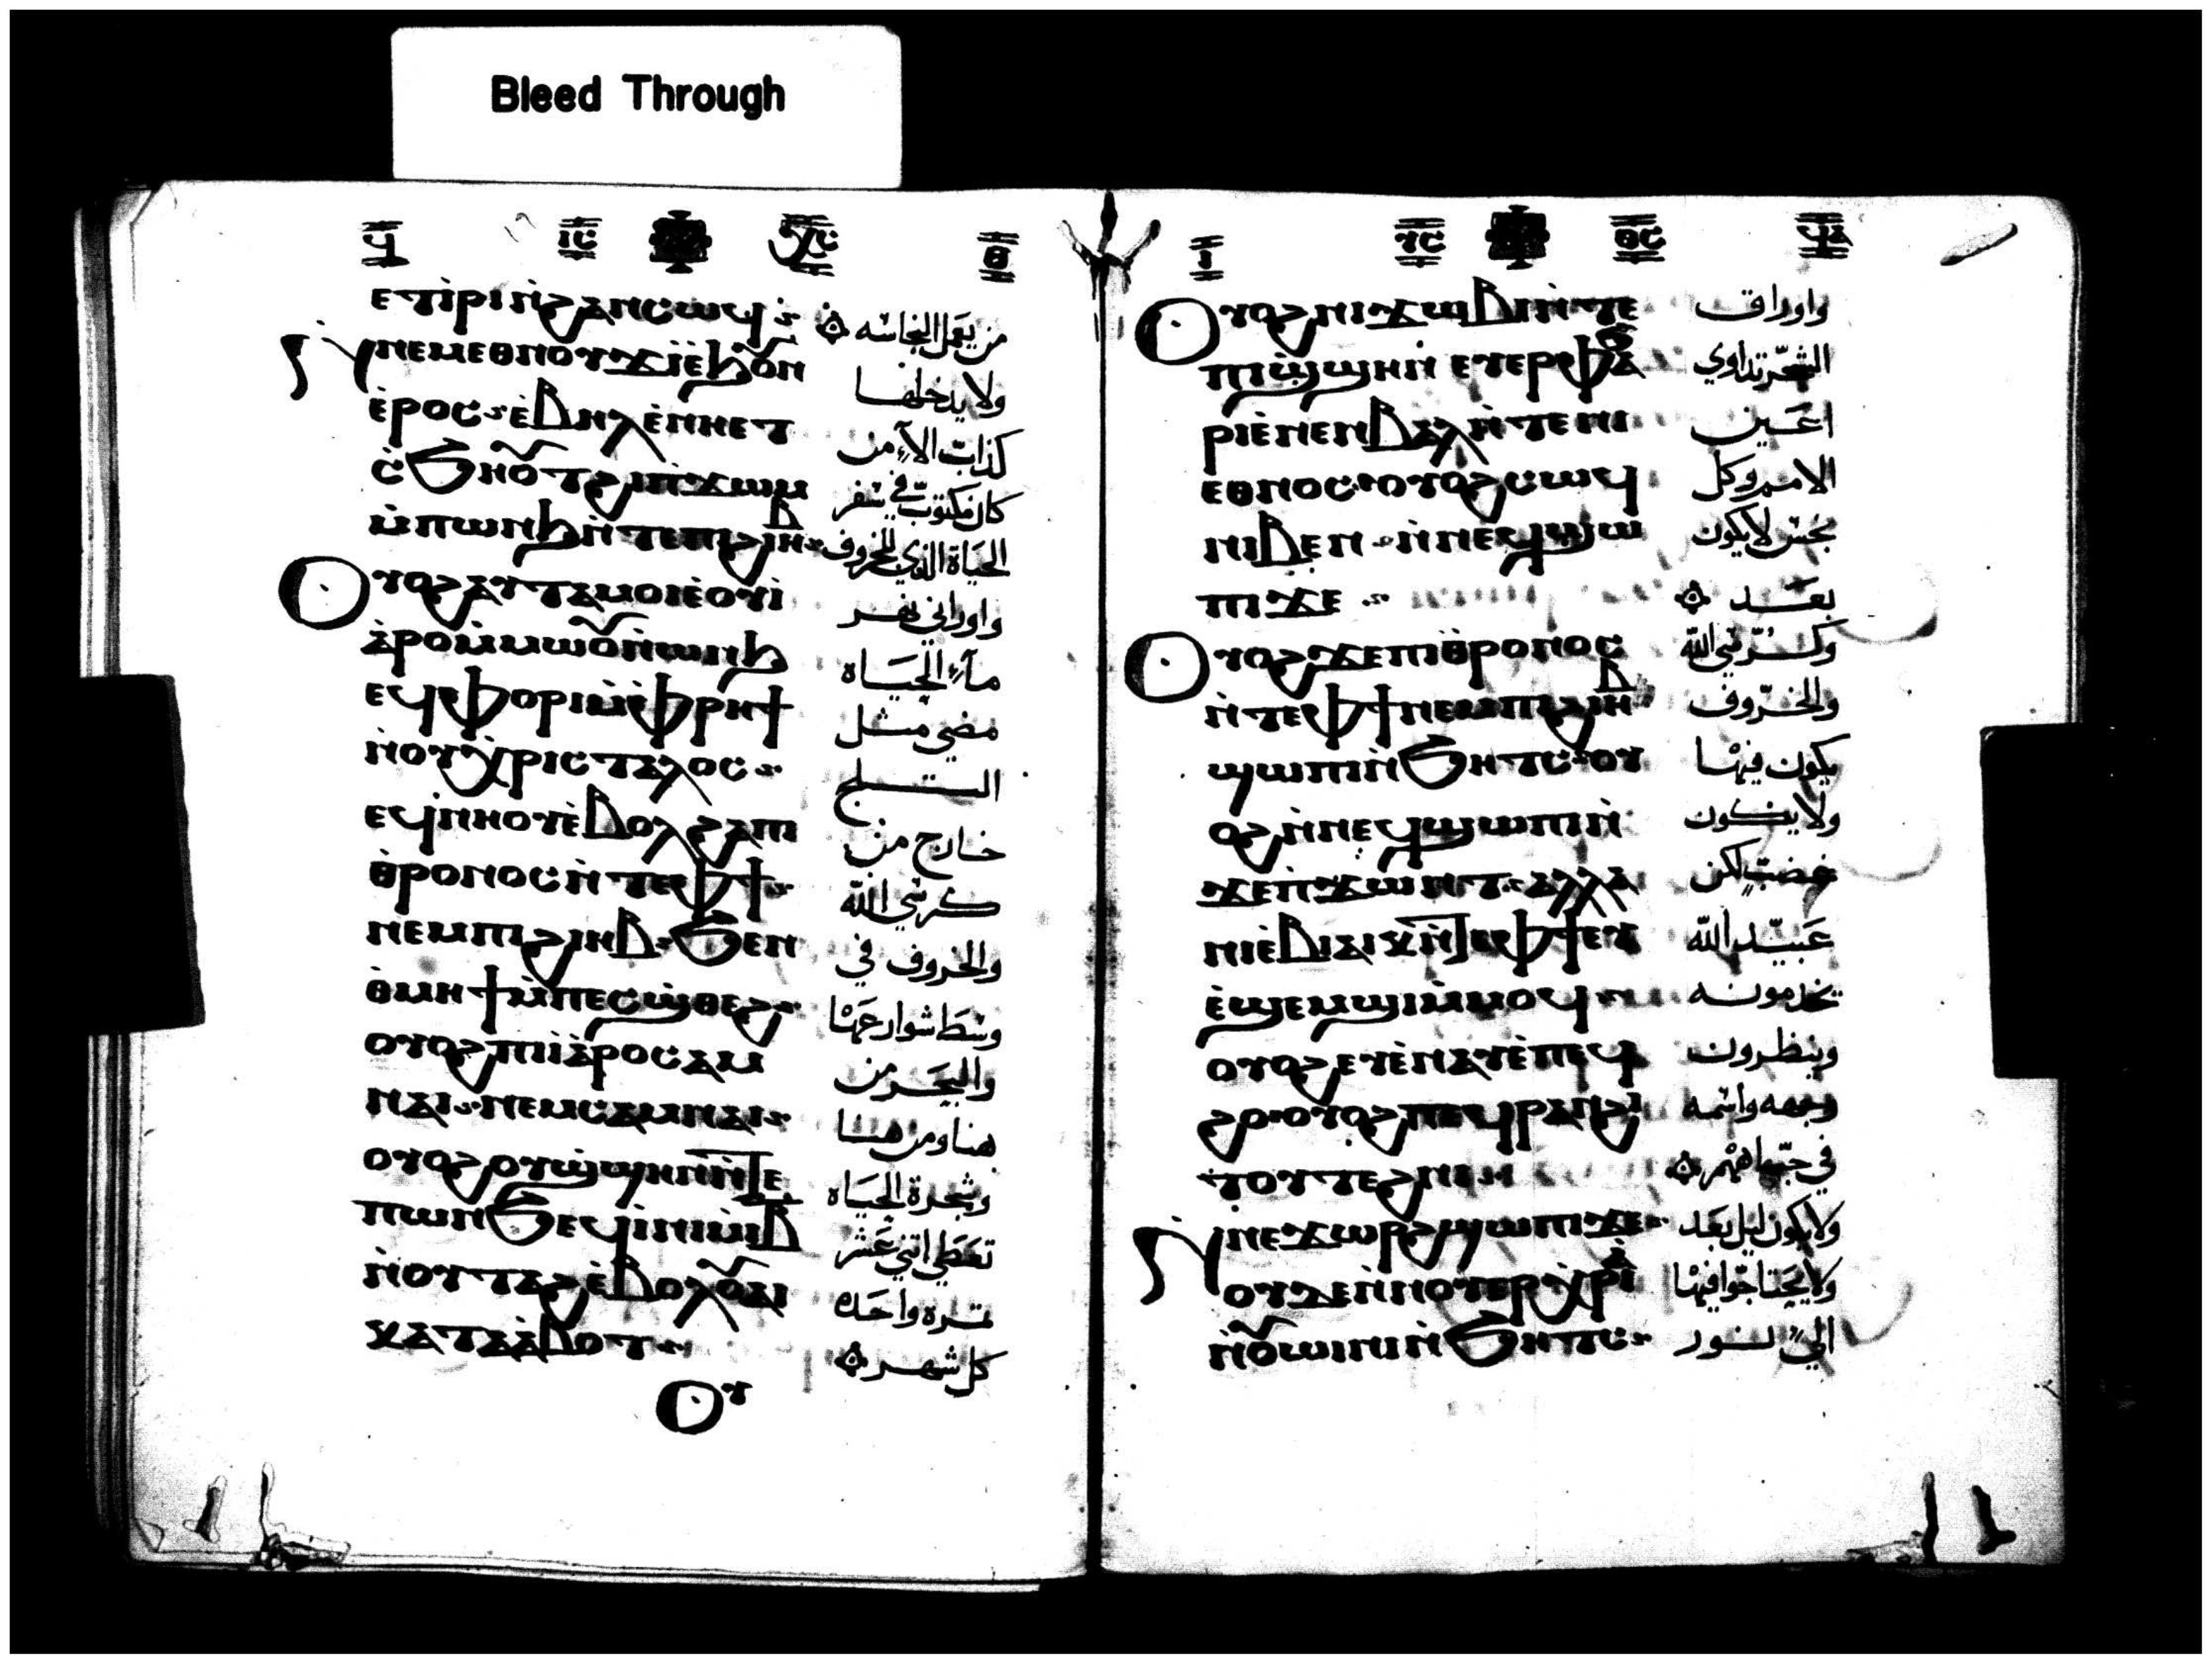 Bleed Through
ϥ ⲓⲥ ⲭⲥ ⲑ
ⲉⲧⲓⲣⲓ ⲛ̀ϩⲁⲛⲥⲱϥ
من يعمل النجاسه
ⲛⲉⲙⲉⲑⲛⲟⲩϫⲓⲉ̀ϧⲟⲩⲛ
ولا يدخلها
ⲉ̀ⲣⲟⲥ ⲉ̀ⲃⲏⲗ ⲉ̀ⲛⲏⲉⲧ
كذاب الا من
ⲥ̀ϧⲏⲟⲩⲧ ϩⲓ ⲡ̀ϫⲱⲙ
كان مكتوب في سفر
ⲙ̀ⲡⲱⲛϧ ⲛ̀ⲧⲉ ⲡⲓϩⲓⲏⲃ
الحياة الذي للخروف
ⲟⲩⲟϩ ⲁⲩⲧⲁⲙⲟⲓ ⲉ̀ⲟⲩⲓ̀
واوراني نهر
ⲁ̀ⲣⲟ ⲙ̀ⲙⲱⲟⲩ ⲛ̀ⲱⲛϧ
مآء الحياه
ⲉϥⲉⲫⲟⲣⲓ ⲙ̀ⲫⲣⲏϯ
مضي مثل
ⲛ̀ⲟⲩⲭⲣⲓⲥⲧⲁⲗⲟⲥ
الثلج
ⲉϥⲛ̀ⲛⲟⲩ ⲉ̀ⲃⲟⲗ ϩⲁ ⲡⲓ
خارج من
ⲑ̀ⲣⲟⲛⲟⲥ ⲛ̀ⲧⲉ ⲫϯ
كرسي الله
ⲛⲉⲙ ⲡⲓϩⲓⲏⲃ ϧⲉⲛ
والخروف في
ⲑ̀ⲙⲏϯ ⲙ̀ⲡⲉⲥϣⲑⲉϩ
وسط شوارعها
ⲟⲩⲟϩ ⲡⲓⲓⲁ̀ⲣⲟ ⲥⲁⲙ
والبحر من
ⲛⲁⲓ ⲛⲉⲙ ⲥⲁⲙⲛⲁⲓ
هنا ومن هنا
ⲟⲩⲟϩ ⲟⲩϣ̀ϣⲏⲛ ⲛ̀ⲧⲉ
وشجرة الحياه
ⲡⲱⲛϧ ⲉϥⲓ̀ⲛⲓ ⲙ̀ⲓⲃ
تعطي اثني عشر
ⲛ̀ⲟⲩⲧⲁϩ ⲉ̀ⲃⲟⲗ ⲟⲩⲁⲓ
ثمره واحده
ⲕⲁⲧⲁ ⲁ̀ⲃⲟⲧ
كل شهر
ⲟⲩ
ⲓ ⲩⲥ ⲑⲥ ϥⲁ
ⲟⲩⲟϩ ⲛⲓϫⲱⲃⲓ ⲛ̀ⲧⲉ
واوراق
ⲡⲓϣ̀ϣⲏⲛ ⲉⲩⲉⲣⲫⲁϧ
الشجر تداوي
ⲣⲓ ⲉ̀ⲛⲉⲛⲃⲁⲗ ⲛ̀ⲧⲉ ⲛⲓ
اعين
ⲉⲑⲛⲟⲥ ⲟⲩⲟϩ ⲥⲱϥ
الامم وكل
ⲛⲓⲃⲉⲛ ⲛ̀ⲛⲉϥϣⲱ
نجس لا يكون
ⲡⲓ ϫⲉ
بعد
ⲟⲩⲟϩ ϫⲉ ⲡⲓⲑ̀ⲣⲟⲛⲟⲥ
وكرسي الله
ⲛ̀ⲧⲉ ⲫϯ ⲛⲉⲙ ⲡⲓϩⲓⲏⲃ
والخروف
ϣⲱⲡⲓ ⲛ̀ϧⲏⲧⲥ ⲟⲩ
يكون فيها
ⲟϩ ⲛ̀ⲛⲉϥϣⲱⲡⲓ ⲛ̀
ولا يكون
ϫⲉ ⲡ̀ϫⲱⲛⲧ ⲁⲗⲗⲁ
غضب لكن
ⲛⲓⲉ̀ⲃⲓⲁⲓⲕ ⲛ̀ⲧⲉ ⲫϯ ⲉⲩ
عبيد الله
ⲉ̀ϣⲉⲙϣⲓ ⲙ̀ⲙⲟϥ
يخدمونه
ⲟⲩⲟϩ ⲉⲩⲉ̀ⲛⲁⲩ ⲉ̀ⲡⲉϥ
وينظرون
ϩⲟ ⲟⲩⲟϩ ⲡⲉϥⲣⲁⲛ ϩⲓ
وجهه واسمه
ⲧⲟⲩⲧⲉϩⲛⲓ
في جباههم
ⲛⲉϫⲱⲣϩ ϣⲱⲡⲓ ϫⲉ
ولا يكون ليل بعد
ⲟⲩⲇⲉ ⲛ̀ⲛⲟⲩⲉⲣⲭⲣⲓⲁ
ولا يحتاجوا فيها
ⲛ̀ⲟⲩⲱⲓⲛⲓ ⲛ̀ϧⲏⲧⲥ
الي نور